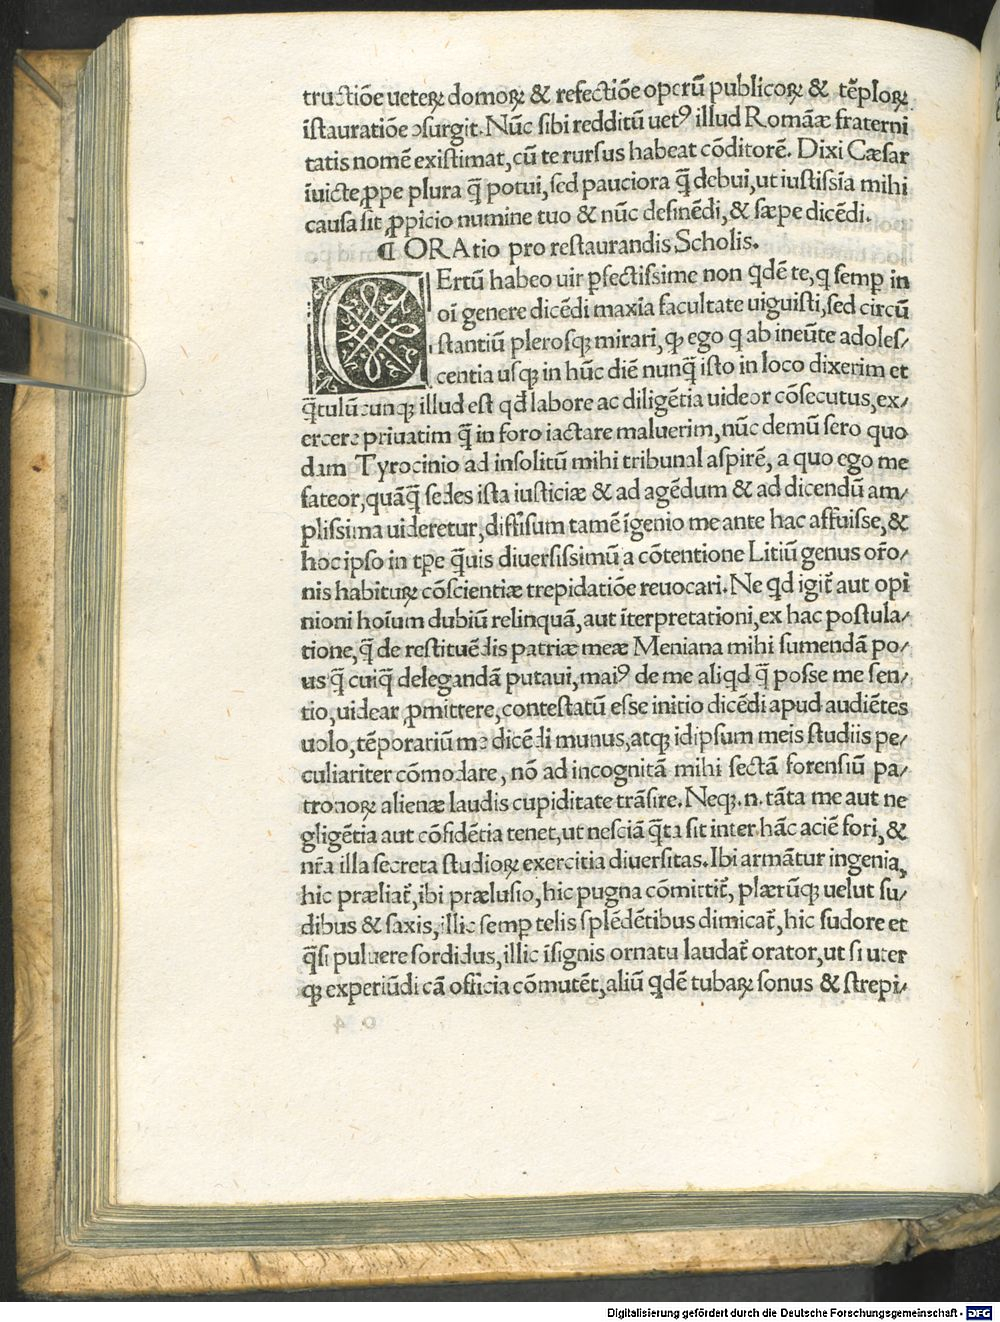 tructiōe ueteꝝ domoꝝ & refectiōe operū publicoꝝ & tēploꝝ
īstauratiōe ꝯsurgit. Nūc sibi redditū uetꝰ illud Romāæ fraterni
tatis nomē existimat, cū te rursus habeat cōditorē. Dixi Cæsar
īuicte ꝓpe plura q̄ potui, sed pauciora q̄ debui, ut iustissīa mihi
causa sit ꝓpicio numine tuo & nūc desinēdi, & sæpe dicēdi.
¶ ORAtio pro restaurandis Scholis.
CErtū habeo uir ꝑfectissime non qdē te, q semꝑ in
oī genere dicēdi maxīa facultate uiguisti, sed circū
stantiū plerosqꝫ mirari, ꝙ ego q ab ineūte adoles/
centia usqꝫ in hūc diē nunq̄ isto in loco dixerim et
q̄tulūcunqꝫ illud est qđ labore ac diligētia uideor cōsecutus, ex/
ercere priuatim q̄ in foro iactare maluerim, nūc demū sero quo
dam Tyrocinio ad insolitū mihi tribunal aspirē, a quo ego me
fateor, quāq̄ sedes ista iusticiæ & ad agēdum & ad dicendū am/
plissima uideretur, diffisum tamē īgenio me ante hac affuisse, &
hoc ipso in tꝑe q̄uis diuersissimū a cōtentione Litiū genus or̄o/
nis habituꝝ cōscientiæ trepidatiōe reuocari. Ne qd igit̄ aut opi
nioni hoīum dubiū relinquā, aut īterpretationi, ex hac postula/
tione, q̄ de restituēdis patriæ meæ Meniana mihi sumendā po/
us q̄ cuiq̄ delegandā putaui, maiꝰ de me aliqd q̄ posse me sen/
tio, uidear ꝓmittere, contestatū esse initio dicēdi apud audiētes
uolo, tēporariū me dicēdi munus, atqꝫ idipsum meis studiis pe/
culiariter cōmodare, nō ad incognitā mihi sectā forensiū pa/
tronoꝝ alienæ laudis cupiditate trāsire. Neqꝫ .n. tāta me aut ne
gligētia aut cōfidētia tenet, ut nesciā q̄ta sit inter hāc aciē fori, &
nr̄a illa secreta studioꝝ exercitia diuersitas. Ibi armātur ingenia,
hic præliat̄, ibi prælusio, hic pugna cōmittit̄, plærūqꝫ uelut su/
dibus & saxis, illic semꝑ telis splēdētibus dimicat̄, hic sudore et
q̄si puluere sordidus, illic īsignis ornatu laudat̄ orator, ut si uter
qꝫ experiūdi cā officia cōmutēt, aliū qdē tubaꝝ sonus & strepi/
Digitalisierung gefördert durch die Deutsche Forschungsgemeinschaft - DFG